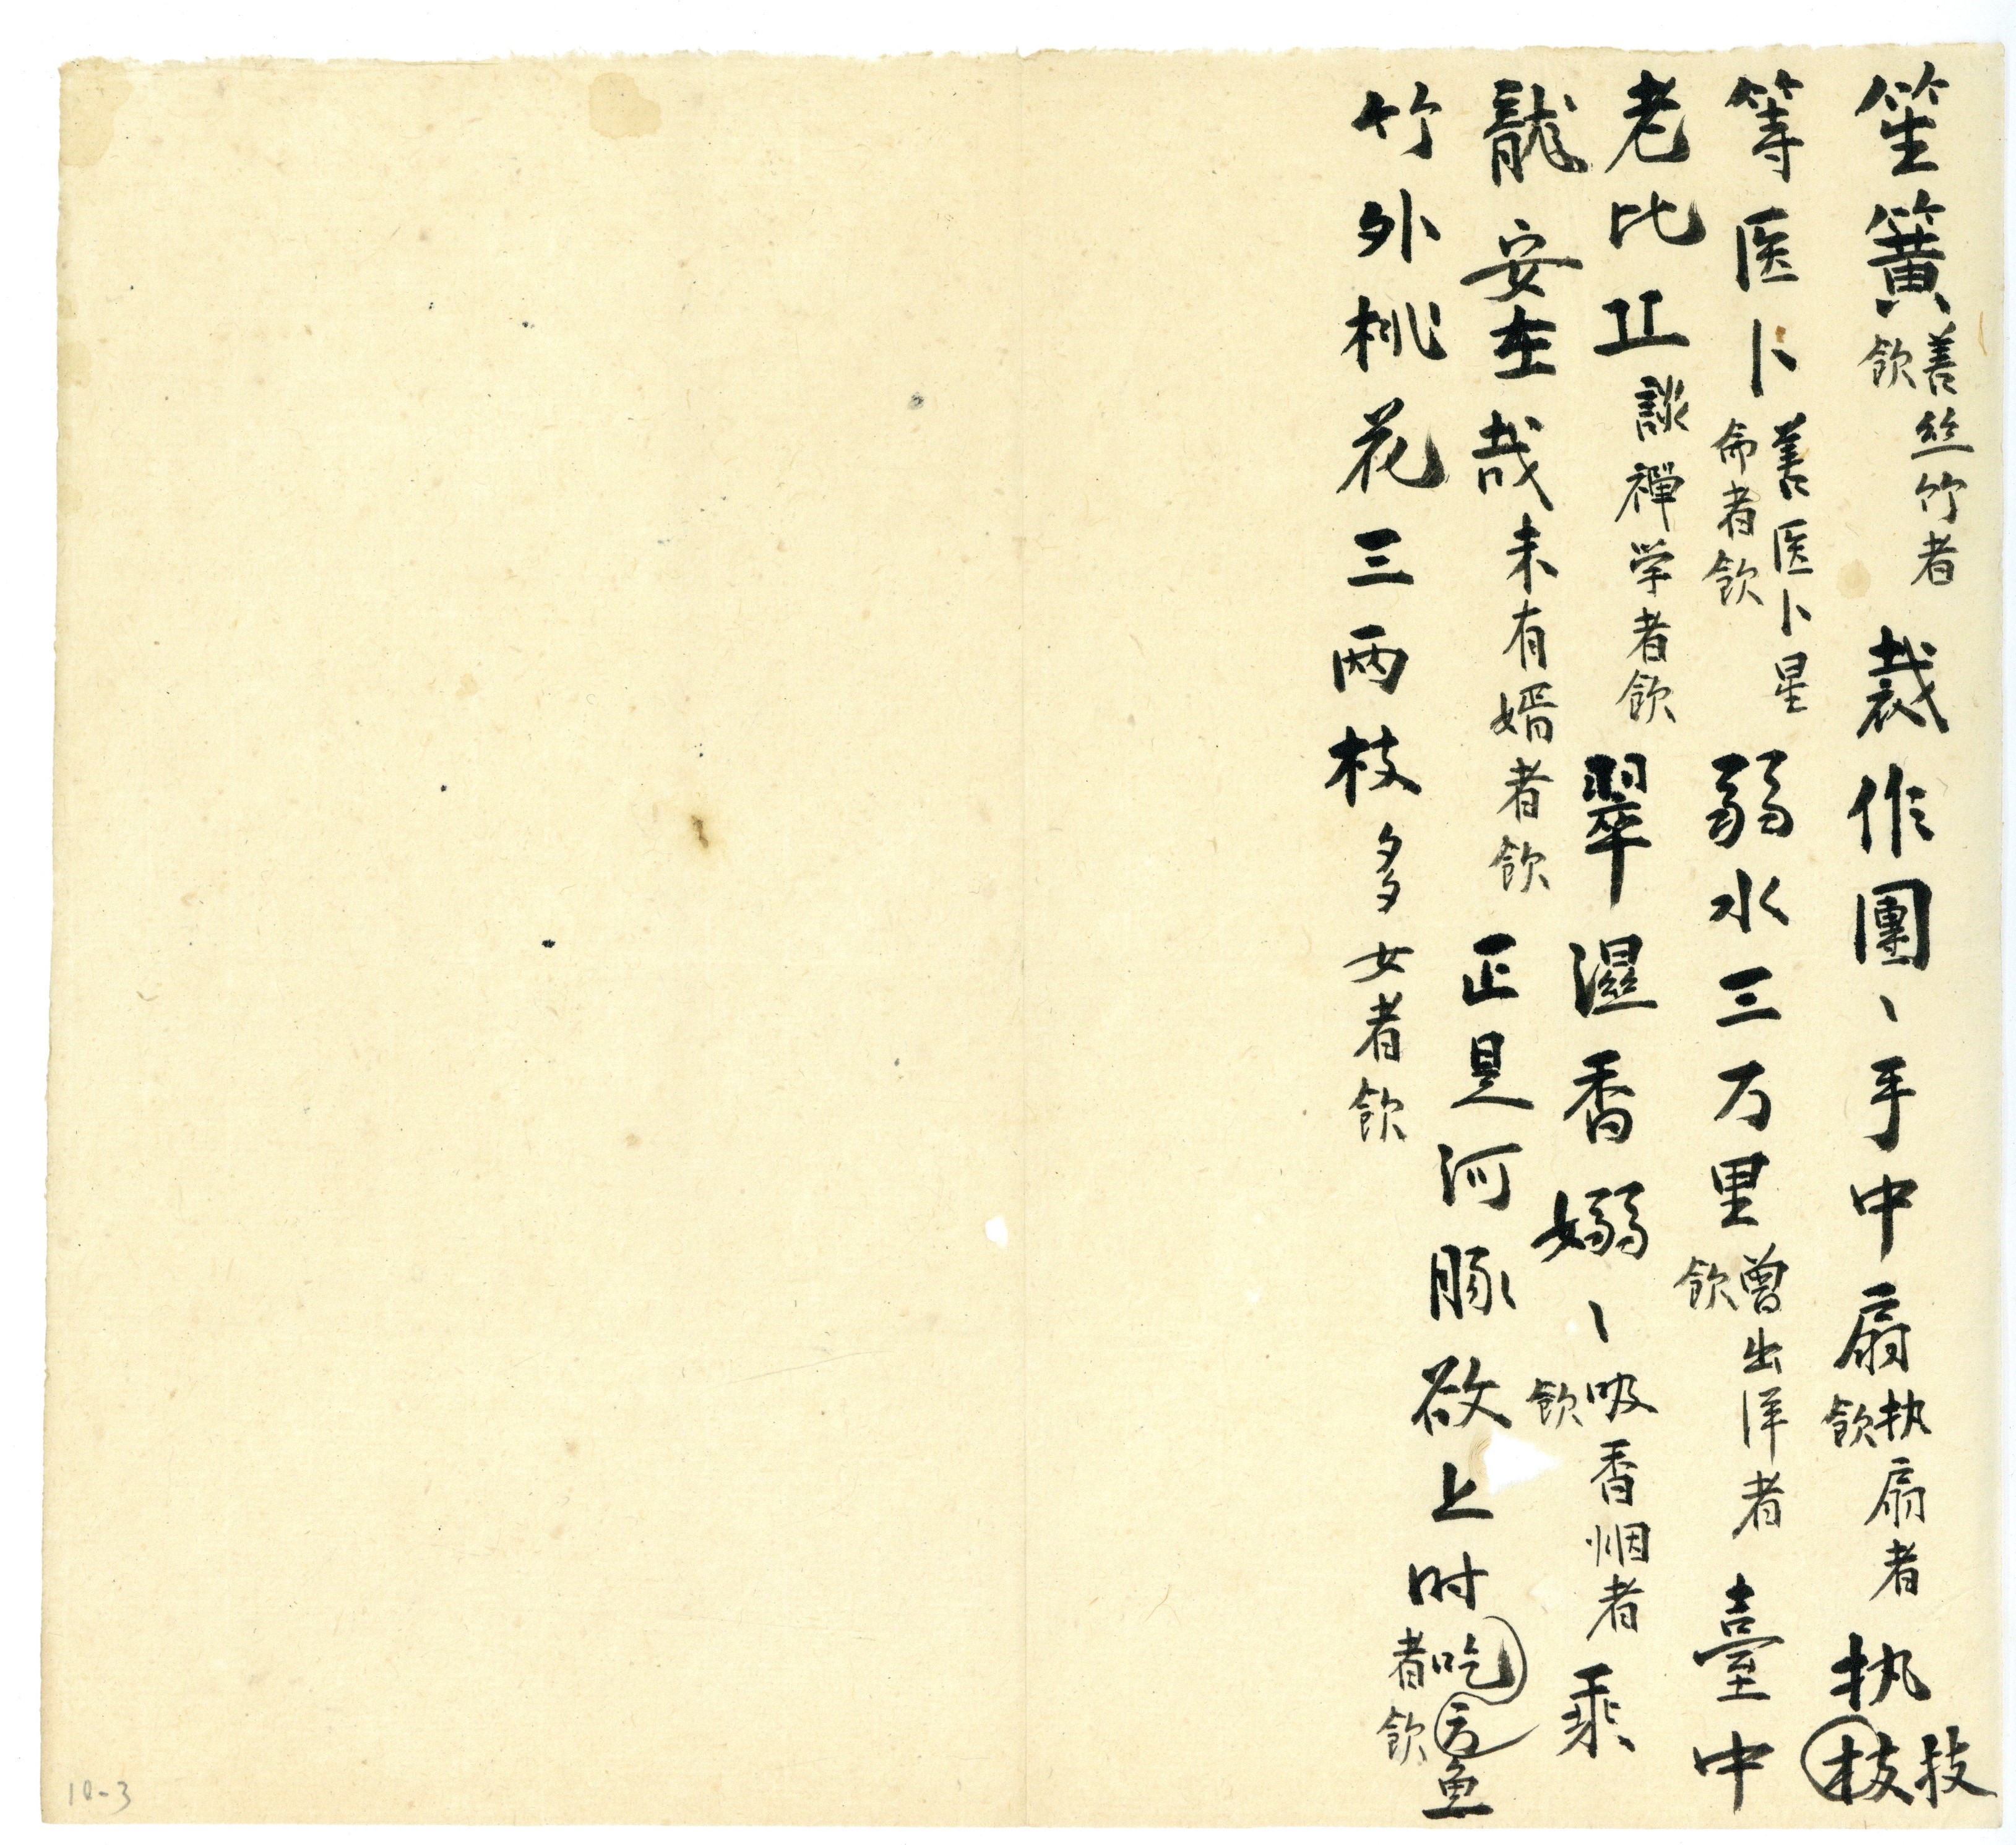 笙簧善丝竹者飲裁作團、手中扇执扇者飲执枝技
等医卜善医卜星命者飲弱水三万里曾出洋者飲臺中
老比丘談禪学者飲翠濕香嫋、吸香烟者飲乘
龍安在哉未有婿者飲正是河豚欲上时吃魚者飲
竹外桃花三两枝多女者飲
10-3